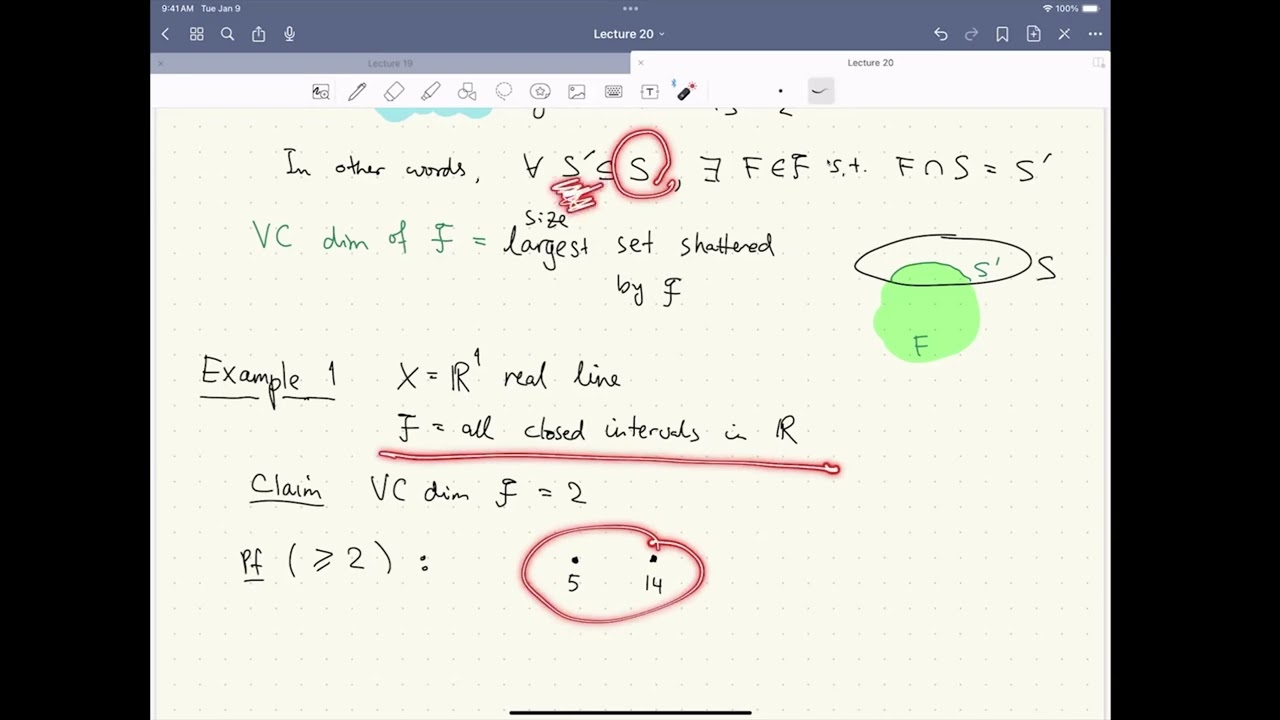 9:41 AM Tue Jan 9
100%
Lecture 20
Lecture 19
Lecture 20
In other words, ∀ S' ⊆ S, ∃ F ∈ F s.t. F ∩ S = S'
size
VC dim of F = largest set shattered
by F
S' S
F
Example 1 X = ℝ¹ real line
F = all closed intervals in ℝ
Claim VC dim F = 2
Pf (≥ 2) :
5 14